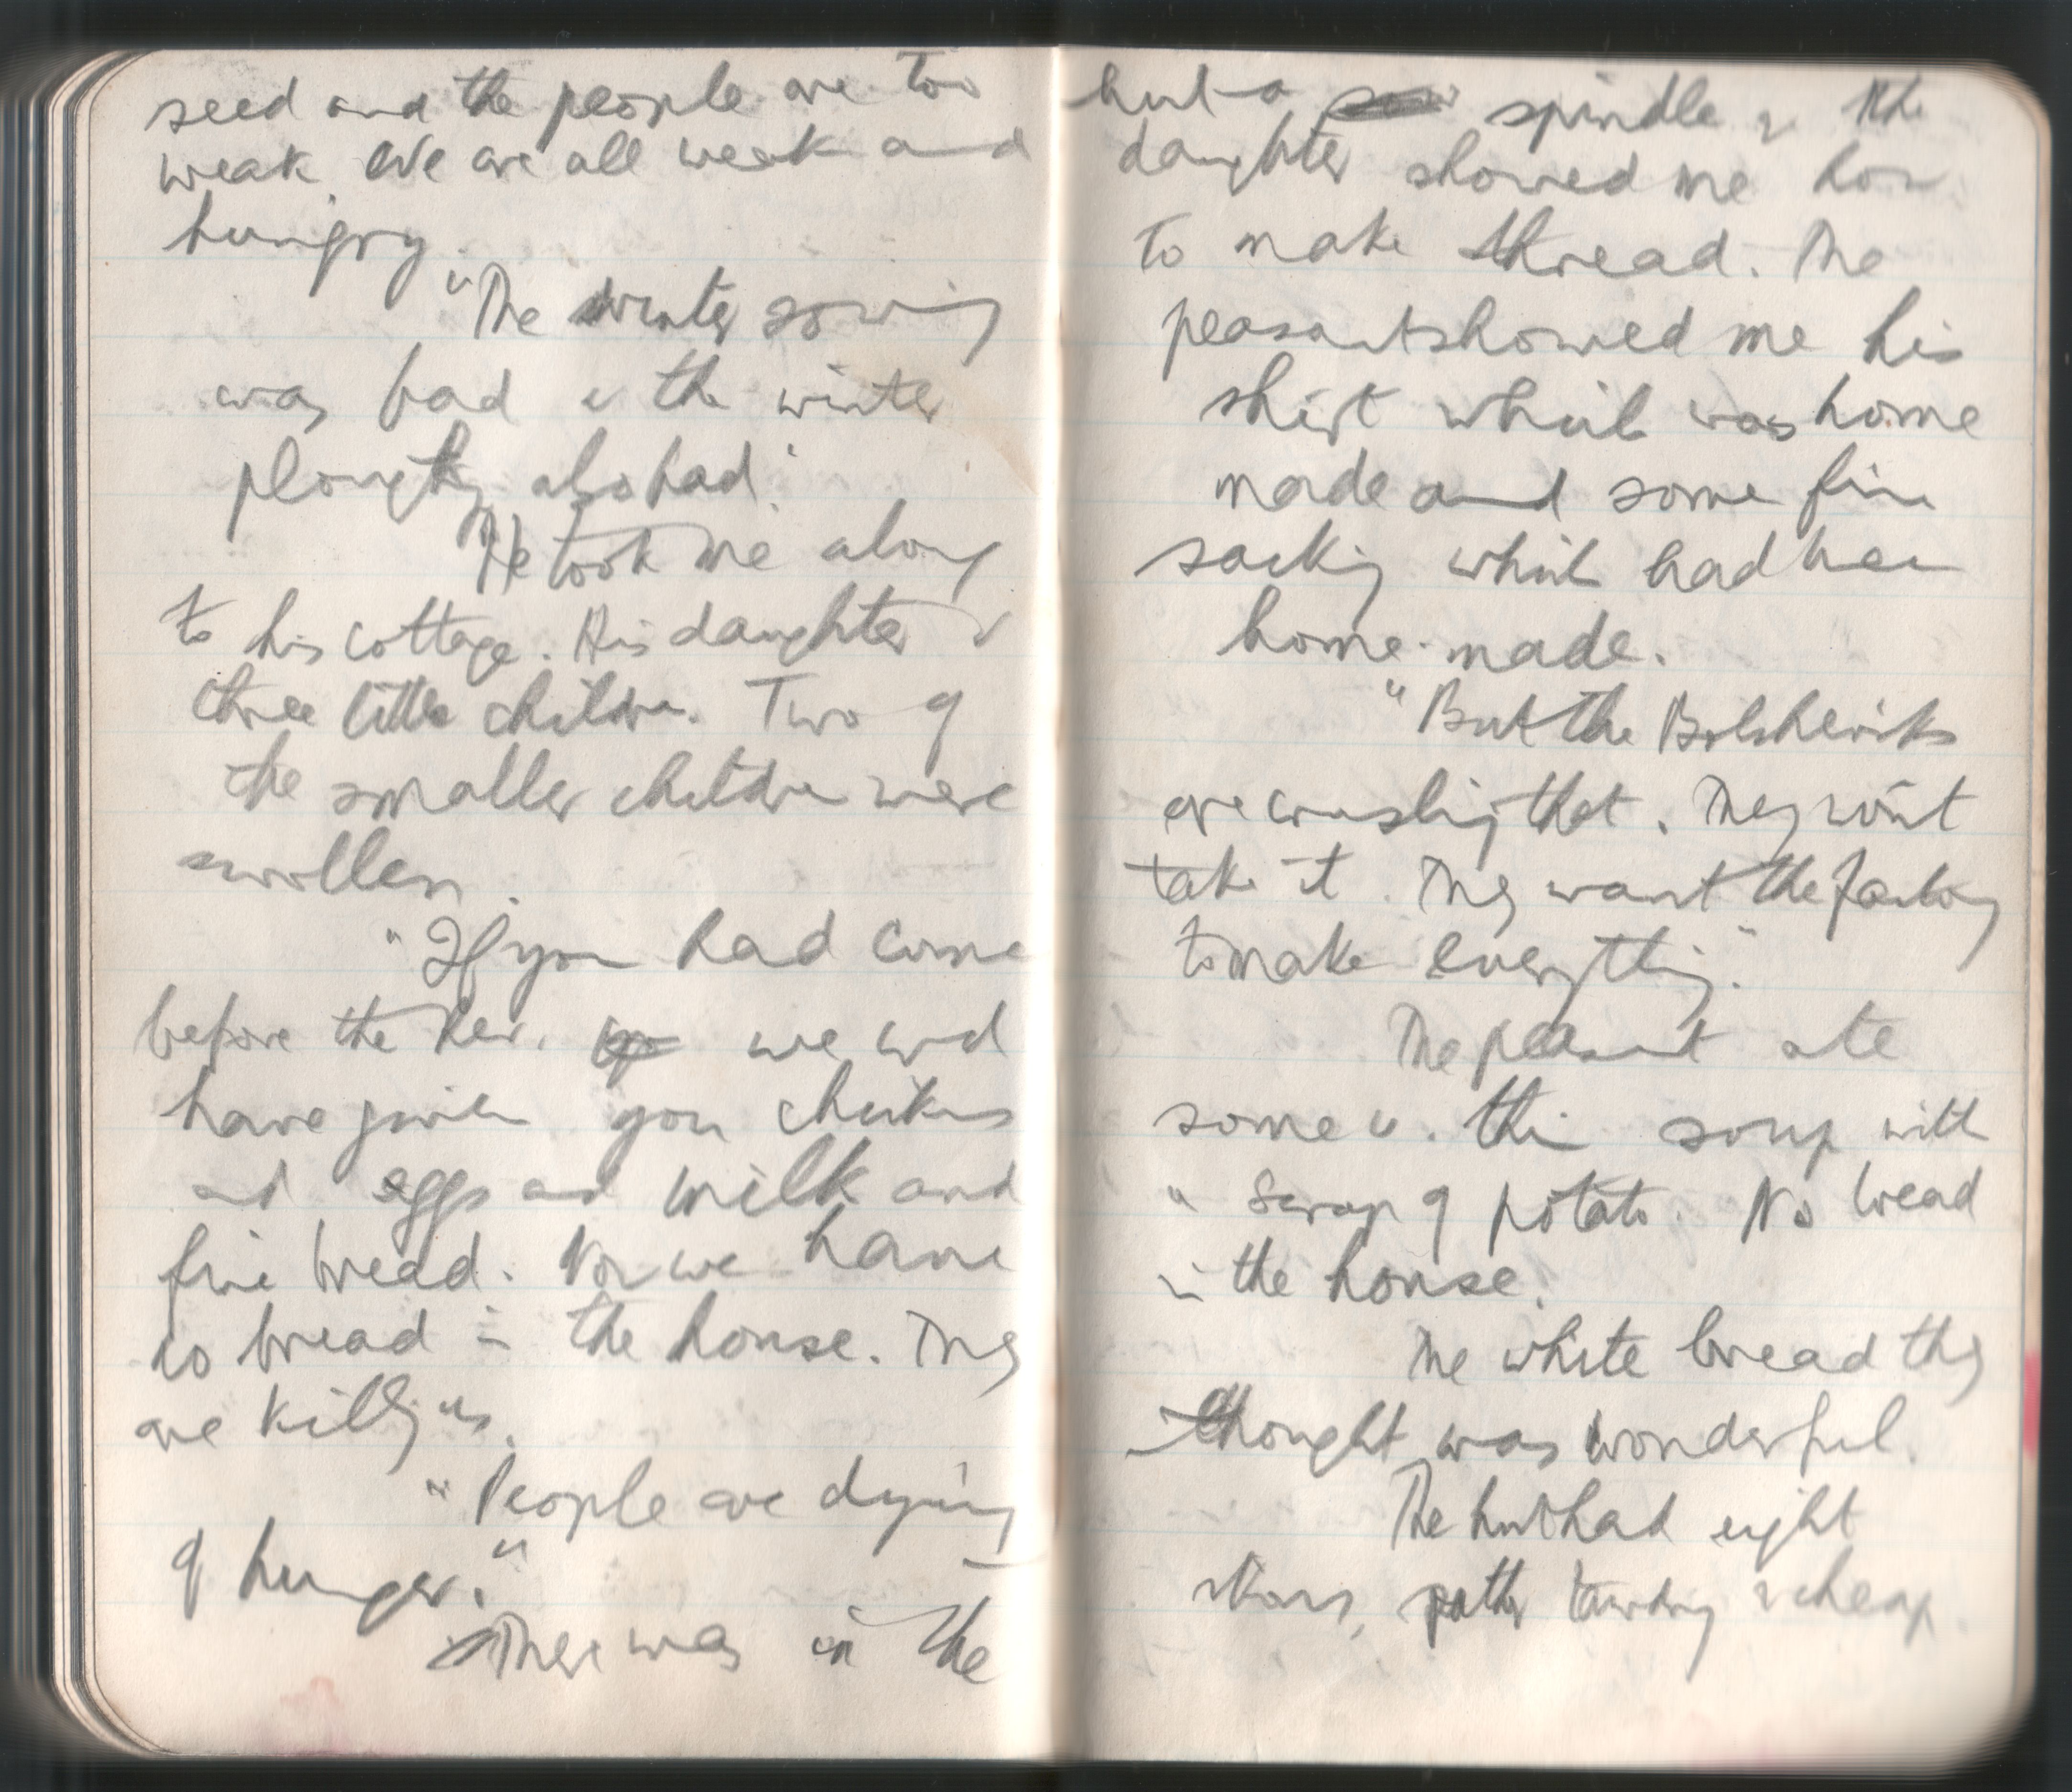 seed and the people are too
weak. We are all weak and
hungry.
"The winter sowing
was bad & the winter
ploughing also bad."
He took me along
to his cottage. His daughter &
three little children. Two of
the smaller children were
swollen.
"If you had come
before the Rev. we wd
have given you chickens
and eggs and milk and
fine bread. Now we have
no bread in the house. They
are killing us.
"People are dying
of hunger."
There was in the
hut a spindle & the
daughter showed me how
to make thread. The
peasant showed me his
shirt which was home
made and some fine
sacking which had been
home-made.
"But the Bolsheviks
are crushing that. They won't
take it. They want the factory
to make everything."
The peasant ate
some v. thin soup with
a scrap of potato. No bread
in the house.
The white bread they
thought was wonderful.
The hut had eight
ikons, rather tawdry & cheap.